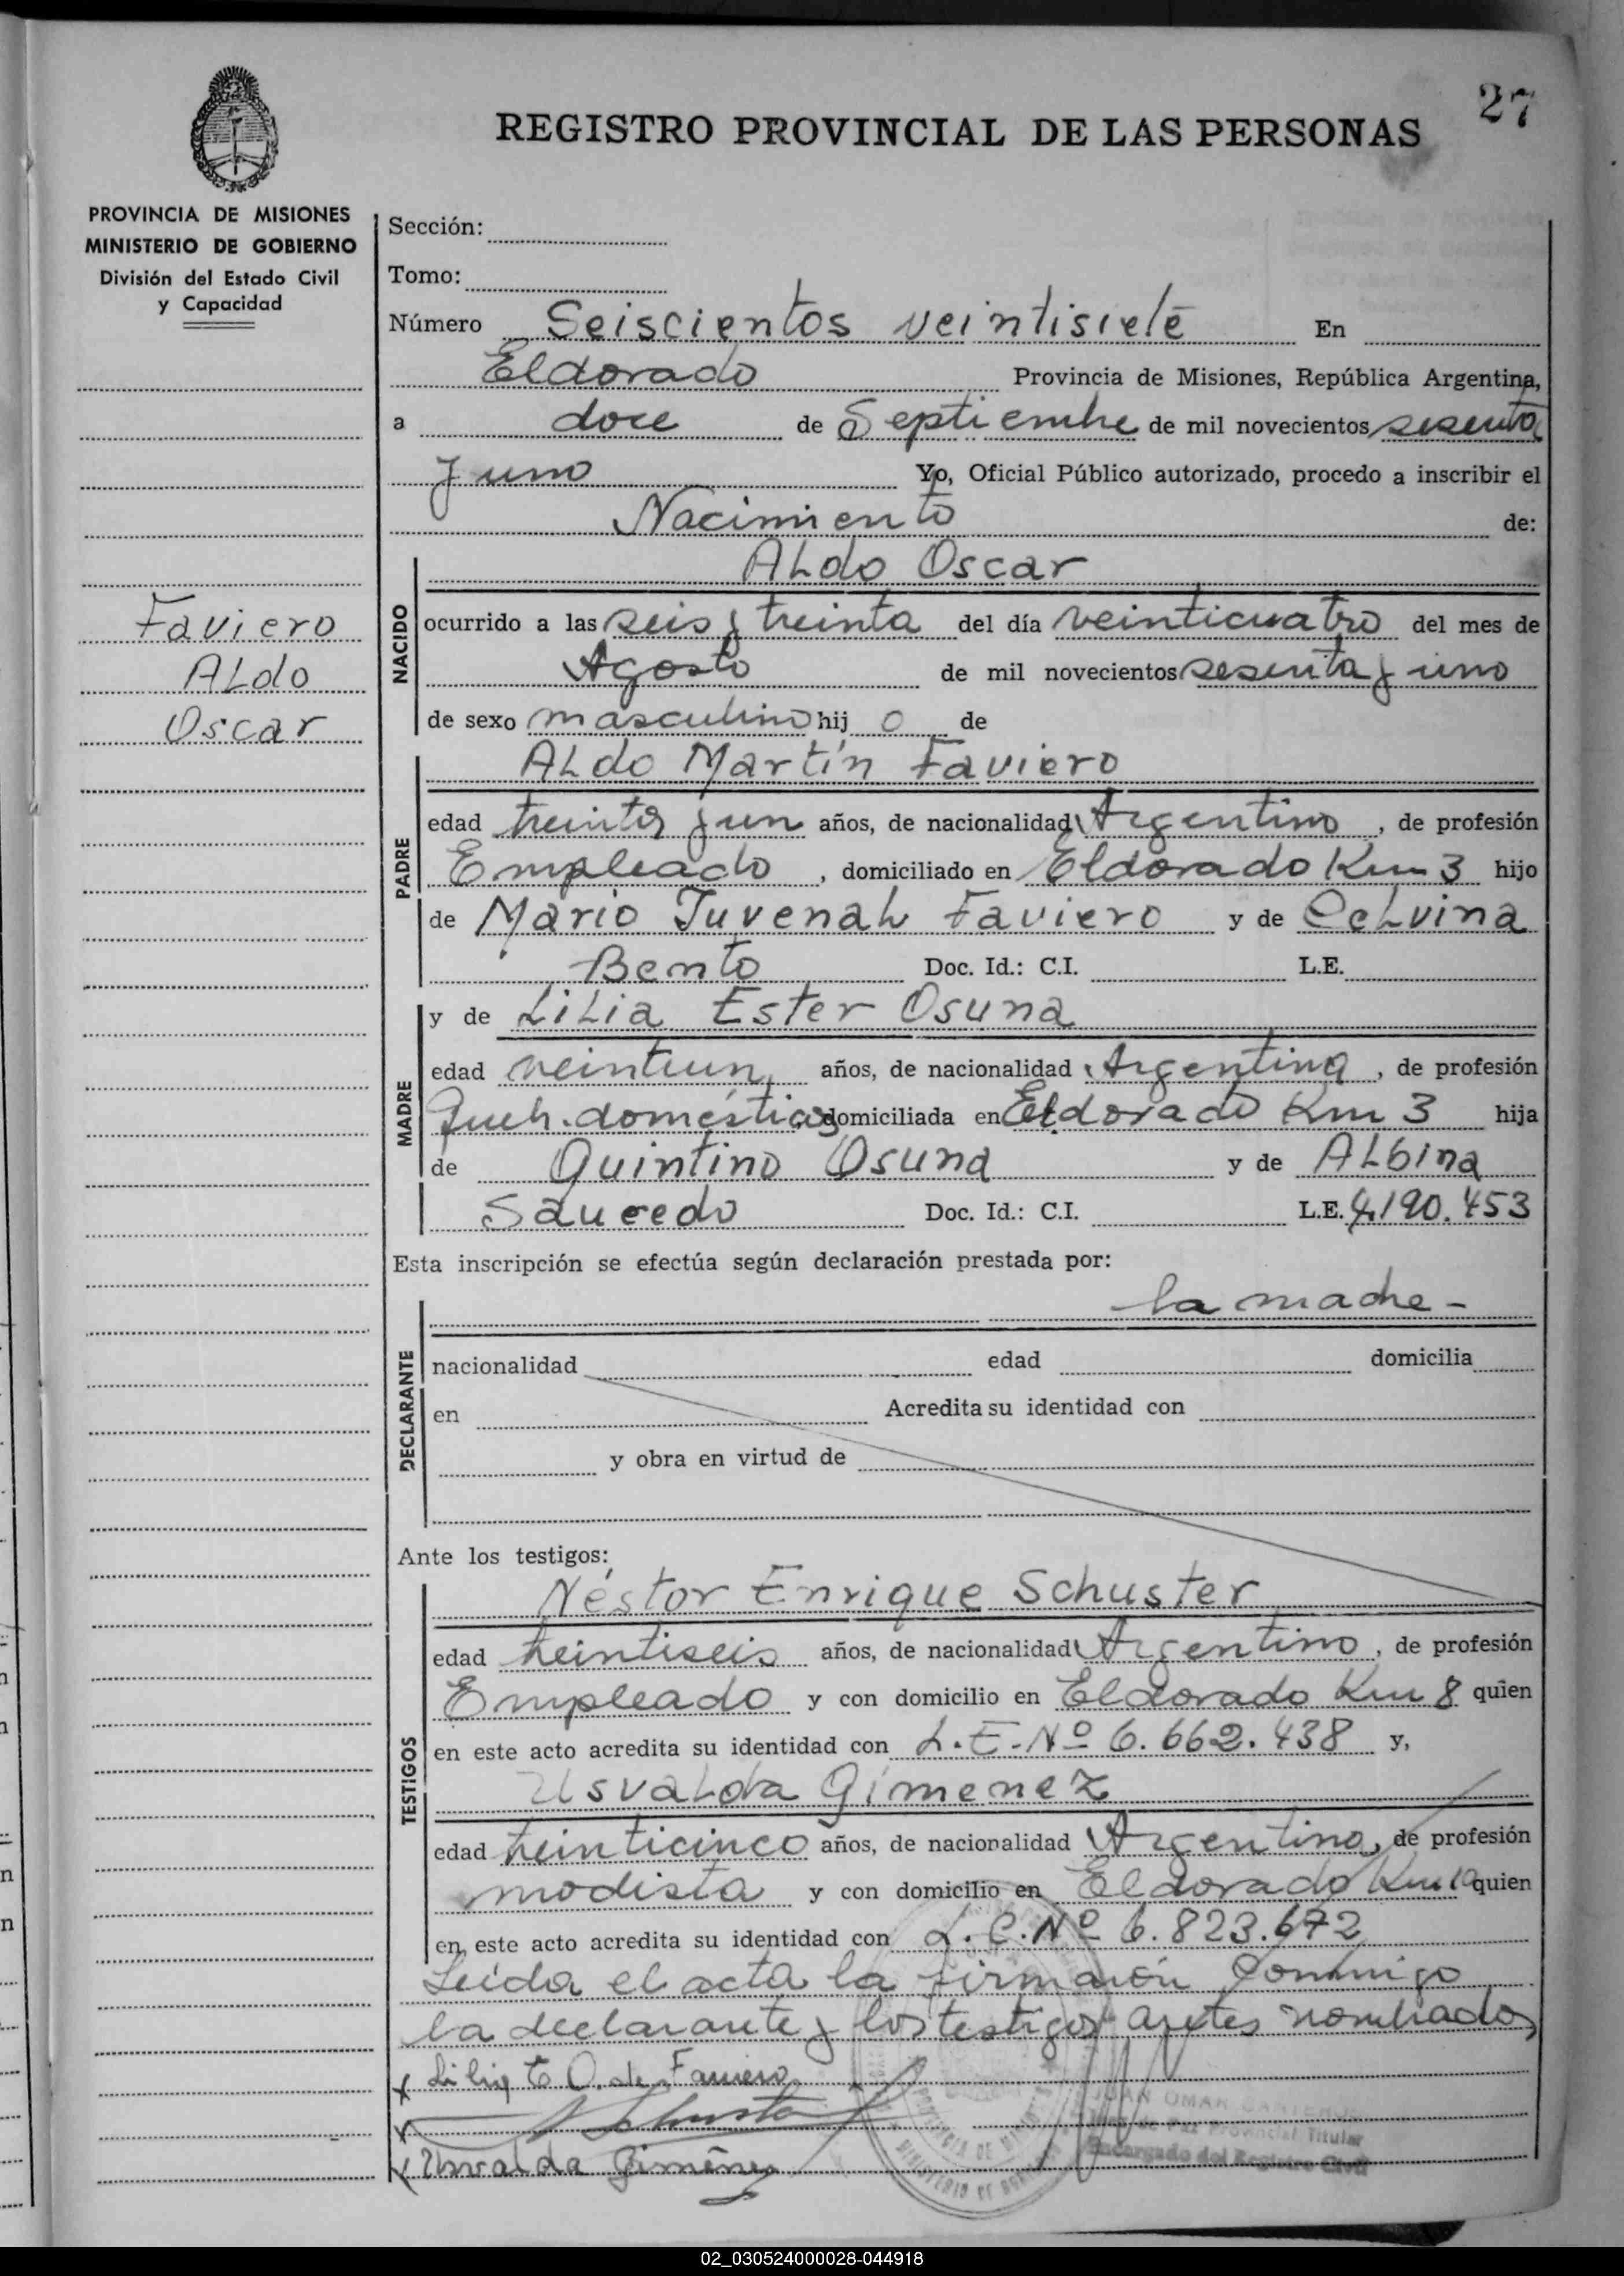 27
REGISTRO PROVINCIAL DE LAS PERSONAS
PROVINCIA DE MISIONES
MINISTERIO DE GOBIERNO
División del Estado Civil
y Capacidad
Faviero
ALdo
Oscar
Sección:
Tomo:
Número Seiscientos veintisiete En
Eldorado Provincia de Misiones, República Argentina,
a doce de Septiembre de mil novecientos sesenta
y uno Yo, Oficial Público autorizado, procedo a inscribir el
Nacimiento de:
NACIDO
ALdo Oscar
ocurrido a las seis y treinta del día veinticuatro del mes de
Agosto de mil novecientos sesenta y uno
de sexo masculino hij o de
PADRE
ALdo Martín Faviero
edad treinta y un años, de nacionalidad Argentino, de profesión
Empleado, domiciliado en Eldorado Km 3 hijo
de Mario Juvenal Faviero y de Celvina
Bento Doc. Id.: C.I. L.E.
MADRE
y de LiLia Ester Osuna
edad veintiun años, de nacionalidad Argentina, de profesión
Queh. domésticos domiciliada en Eldorado Km 3 hija
de Quintino Osuna y de ALbina
Saucedo Doc. Id.: C.I. L.E. 4.190.453
Esta inscripción se efectúa según declaración prestada por:
DECLARANTE
la madre -
nacionalidad edad domicilia
en Acredita su identidad con
y obra en virtud de
Ante los testigos:
TESTIGOS
Néstor Enrique Schuster
edad veintiseis años, de nacionalidad Argentino, de profesión
Empleado y con domicilio en Eldorado Km 8 quien
en este acto acredita su identidad con L.E. Nº 6.662.438 y,
Usvalda Gimenez
edad veinticinco años, de nacionalidad Argentina, de profesión
modista y con domicilio en Eldorado Km 10 quien
en este acto acredita su identidad con L.C. Nº 6.823.672
Leída el acta la firmaron conmigo
la declarante y los testigos antes nombrados
x Lilia E O. de Faviero
x Schuster
x Usvalda Giménez
JUAN OMAR
Juez de Paz Provincial Titular
Encargado del Registro Civil
02_030524000028-044918